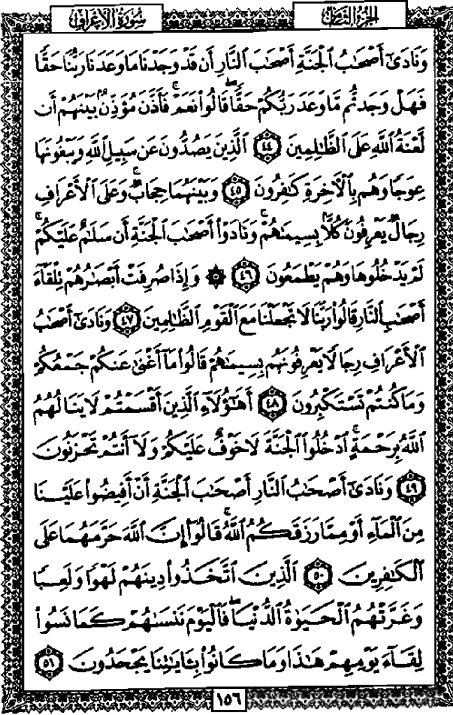 سُورَةُ الأَعْرَافِ الجُزْءُ الثَّامِنُ
وَنَادَىٰٓ أَصْحَٰبُ ٱلْجَنَّةِ أَصْحَٰبَ ٱلنَّارِ أَن قَدْ وَجَدْنَا مَا وَعَدَنَا رَبُّنَا حَقًّا
فَهَلْ وَجَدتُّم مَّا وَعَدَ رَبُّكُمْ حَقًّا ۖ قَالُوا۟ نَعَمْ ۚ فَأَذَّنَ مُؤَذِّنٌۢ بَيْنَهُمْ أَن
لَّعْنَةُ ٱللَّهِ عَلَى ٱلظَّٰلِمِينَ ٤٤ ٱلَّذِينَ يَصُدُّونَ عَن سَبِيلِ ٱللَّهِ وَيَبْغُونَهَا
عِوَجًا وَهُم بِٱلْءَاخِرَةِ كَٰفِرُونَ ٤٥ وَبَيْنَهُمَا حِجَابٌ ۚ وَعَلَى ٱلْأَعْرَافِ
رِجَالٌ يَعْرِفُونَ كُلًّۢا بِسِيمَىٰهُمْ ۚ وَنَادَوْا۟ أَصْحَٰبَ ٱلْجَنَّةِ أَن سَلَٰمٌ عَلَيْكُمْ ۚ
لَمْ يَدْخُلُوهَا وَهُمْ يَطْمَعُونَ ٤٦ ۞ وَإِذَا صُرِفَتْ أَبْصَٰرُهُمْ تِلْقَآءَ
أَصْحَٰبِ ٱلنَّارِ قَالُوا۟ رَبَّنَا لَا تَجْعَلْنَا مَعَ ٱلْقَوْمِ ٱلظَّٰلِمِينَ ٤٧ وَنَادَىٰٓ أَصْحَٰبُ
ٱلْأَعْرَافِ رِجَالًا يَعْرِفُونَهُم بِسِيمَىٰهُمْ قَالُوا۟ مَآ أَغْنَىٰ عَنكُمْ جَمْعُكُمْ
وَمَا كُنتُمْ تَسْتَكْبِرُونَ ٤٨ أَهَٰٓؤُلَآءِ ٱلَّذِينَ أَقْسَمْتُمْ لَا يَنَالُهُمُ
ٱللَّهُ بِرَحْمَةٍ ۚ ٱدْخُلُوا۟ ٱلْجَنَّةَ لَا خَوْفٌ عَلَيْكُمْ وَلَآ أَنتُمْ تَحْزَنُونَ
٤٩ وَنَادَىٰٓ أَصْحَٰبُ ٱلنَّارِ أَصْحَٰبَ ٱلْجَنَّةِ أَنْ أَفِيضُوا۟ عَلَيْنَا
مِنَ ٱلْمَآءِ أَوْ مِمَّا رَزَقَكُمُ ٱللَّهُ ۚ قَالُوٓا۟ إِنَّ ٱللَّهَ حَرَّمَهُمَا عَلَى
ٱلْكَٰفِرِينَ ٥٠ ٱلَّذِينَ ٱتَّخَذُوا۟ دِينَهُمْ لَهْوًا وَلَعِبًا
وَغَرَّتْهُمُ ٱلْحَيَوٰةُ ٱلدُّنْيَا ۚ فَٱلْيَوْمَ نَنسَىٰهُمْ كَمَا نَسُوا۟
لِقَآءَ يَوْمِهِمْ هَٰذَا وَمَا كَانُوا۟ بِـَٔايَٰتِنَا يَجْحَدُونَ ٥١
١٥٦